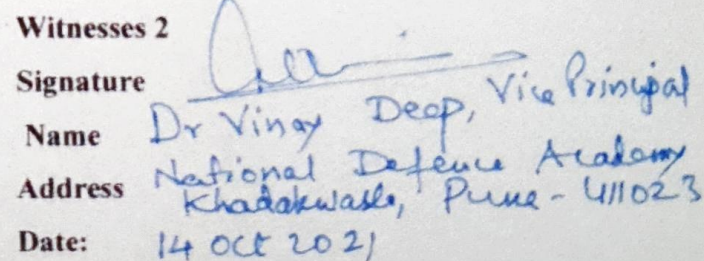 Witnesses 2
Signature
Name Dr Vinay Deop, Vice Principal
Address National Defence Academy
Khadakwasla, Pune - 411023
Date: 14 Oct 2021